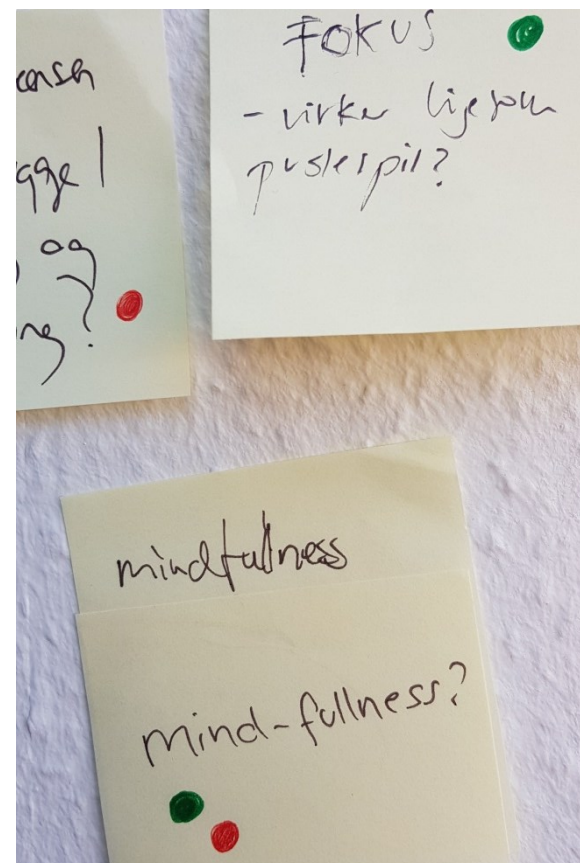 og
FOKUS
- virker ligesom
puslespil?
mindfullness
mind-fullness?